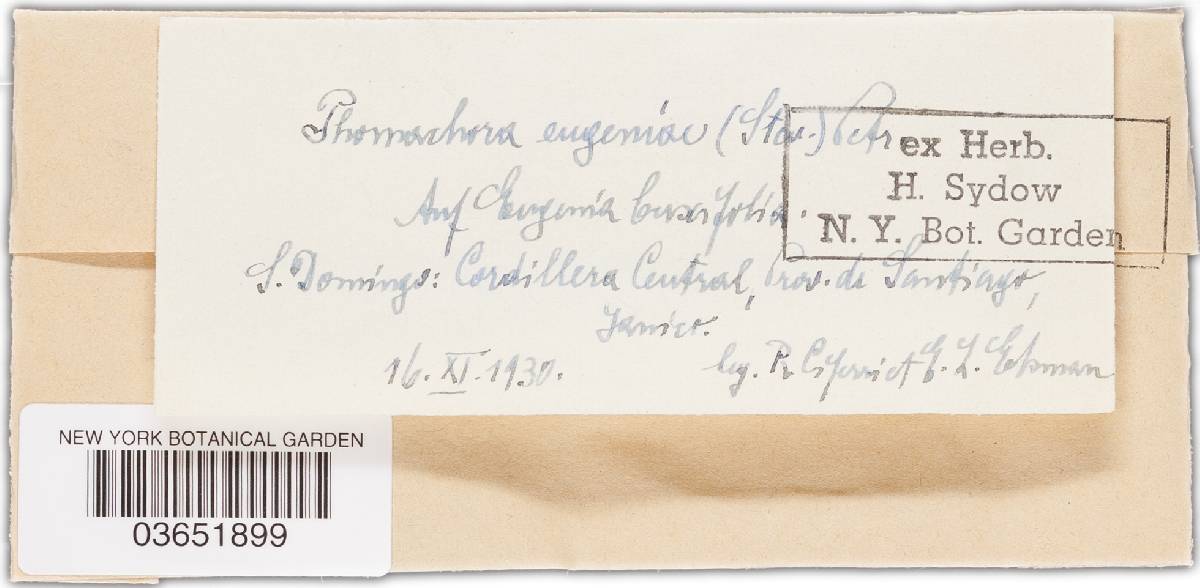 Phomachora eugeniae (Stev.) Petr.
ex Herb.
H. Sydow
N. Y. Bot. Garden
Auf Eugenia buxifolia.
S. Domingo: Cordillera Central, Prov. de Santiago,
Janico.
16. XI. 1930.
leg. R. Ciferri et E. L. Ekman
NEW YORK BOTANICAL GARDEN
03651899